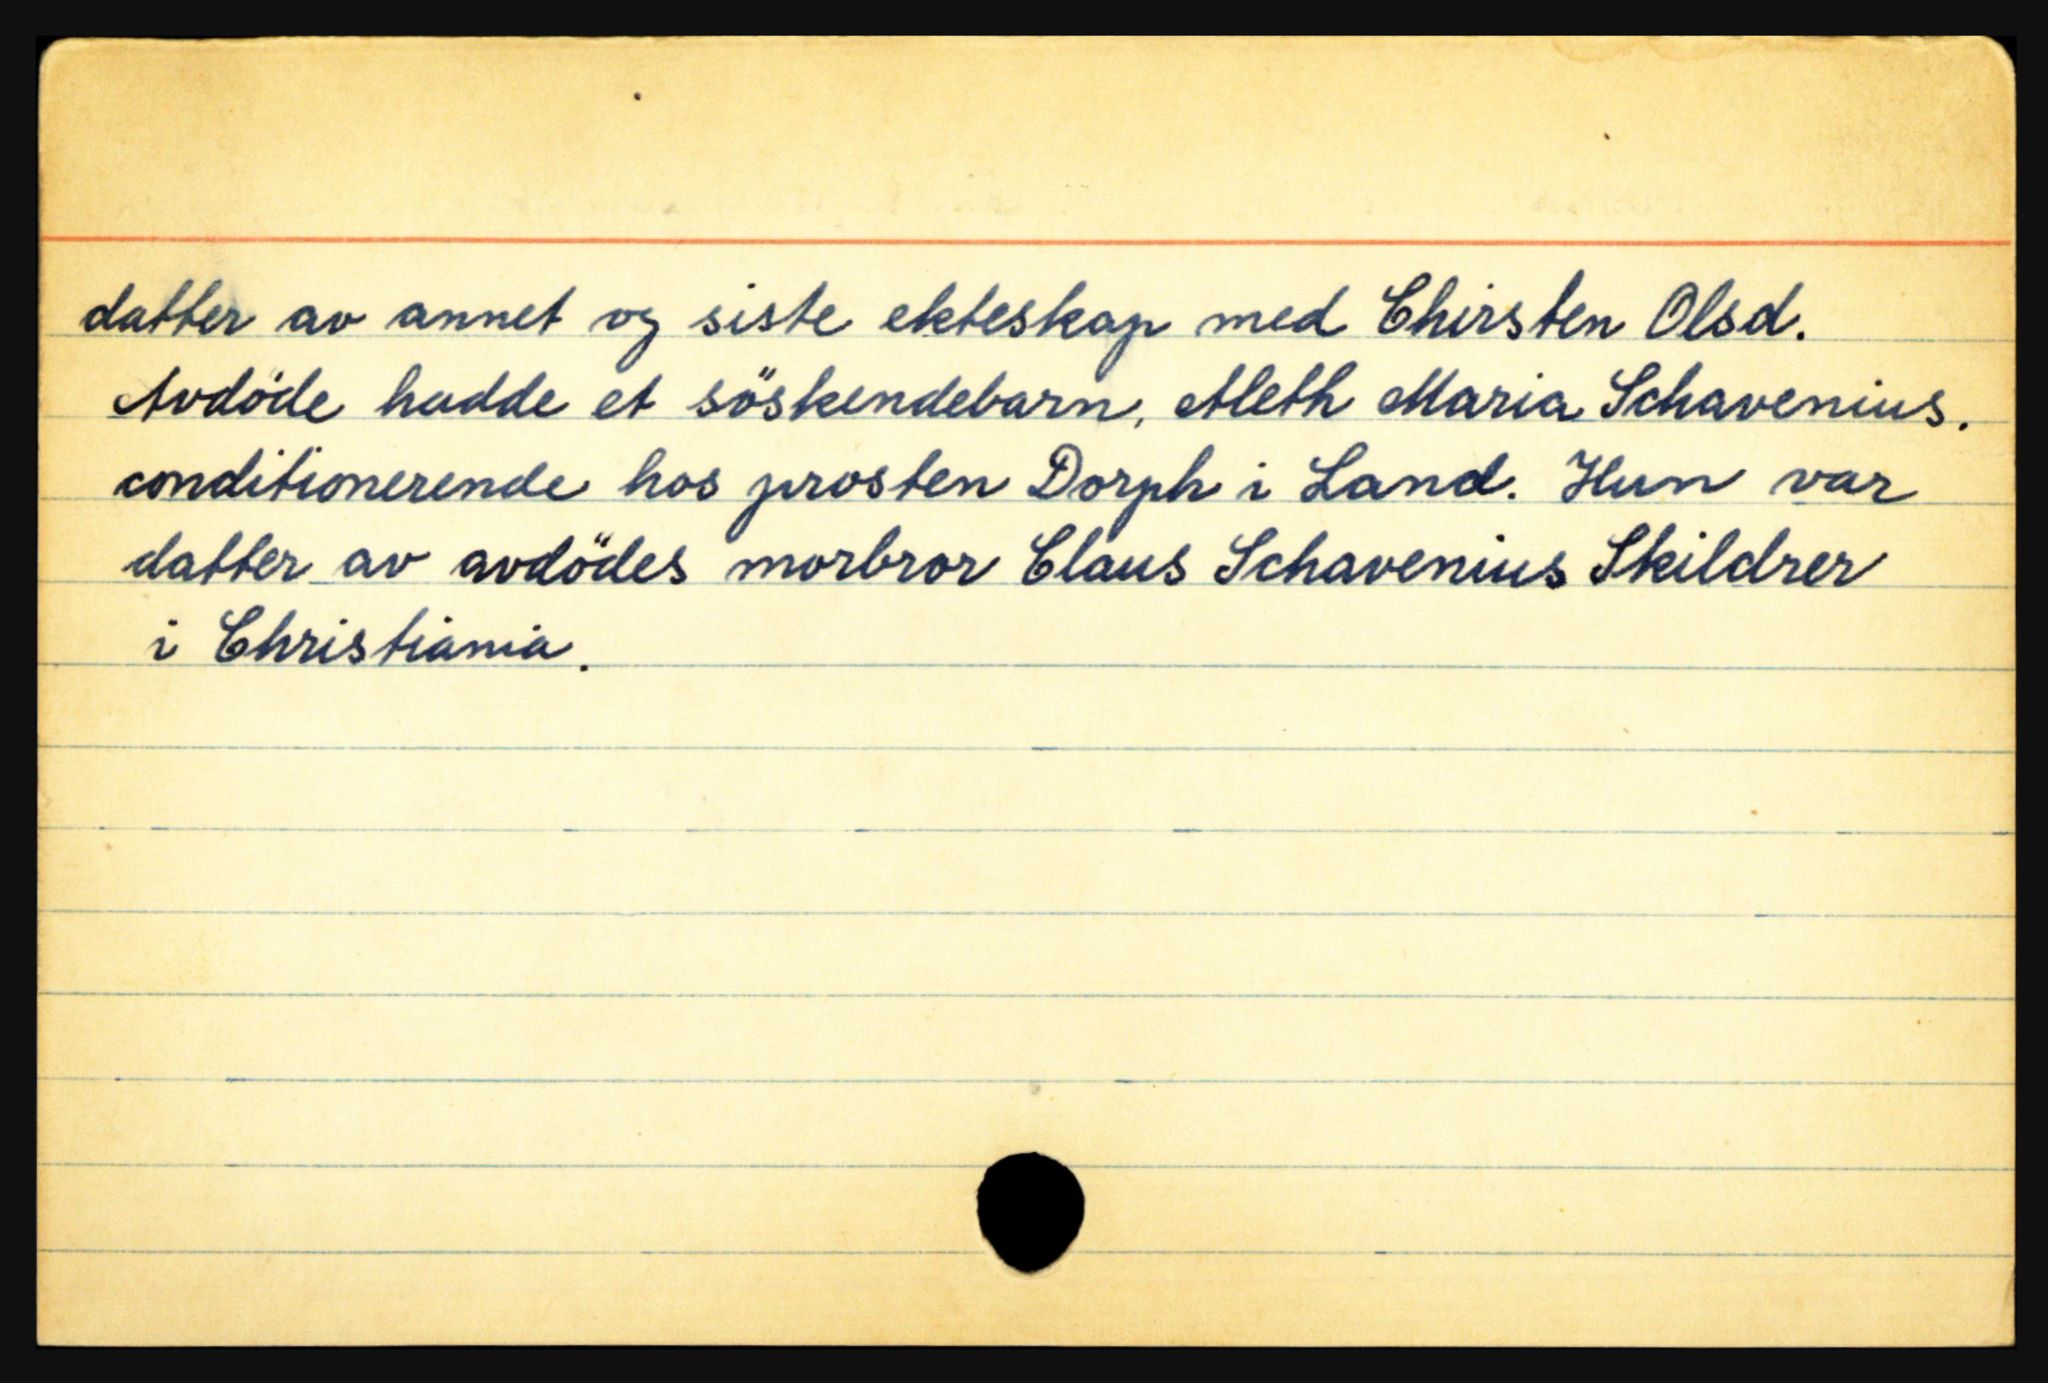 datter av annet og siste ekteskap med Chirsten Olsd.
Avdöde hadde et söskendebarn, Aleth Maria Schavenius.
conditionerende hos prosten Dorph i Land. Hun var
datter av avdödes morbror Claus Schavenius Skildrer
i Christiania.